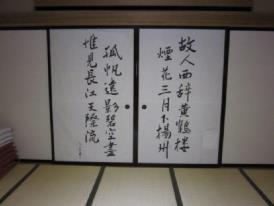 故人西辞黄鶴楼
煙花三月下揚州
孤帆遠影碧空盡
惟見長江天際流